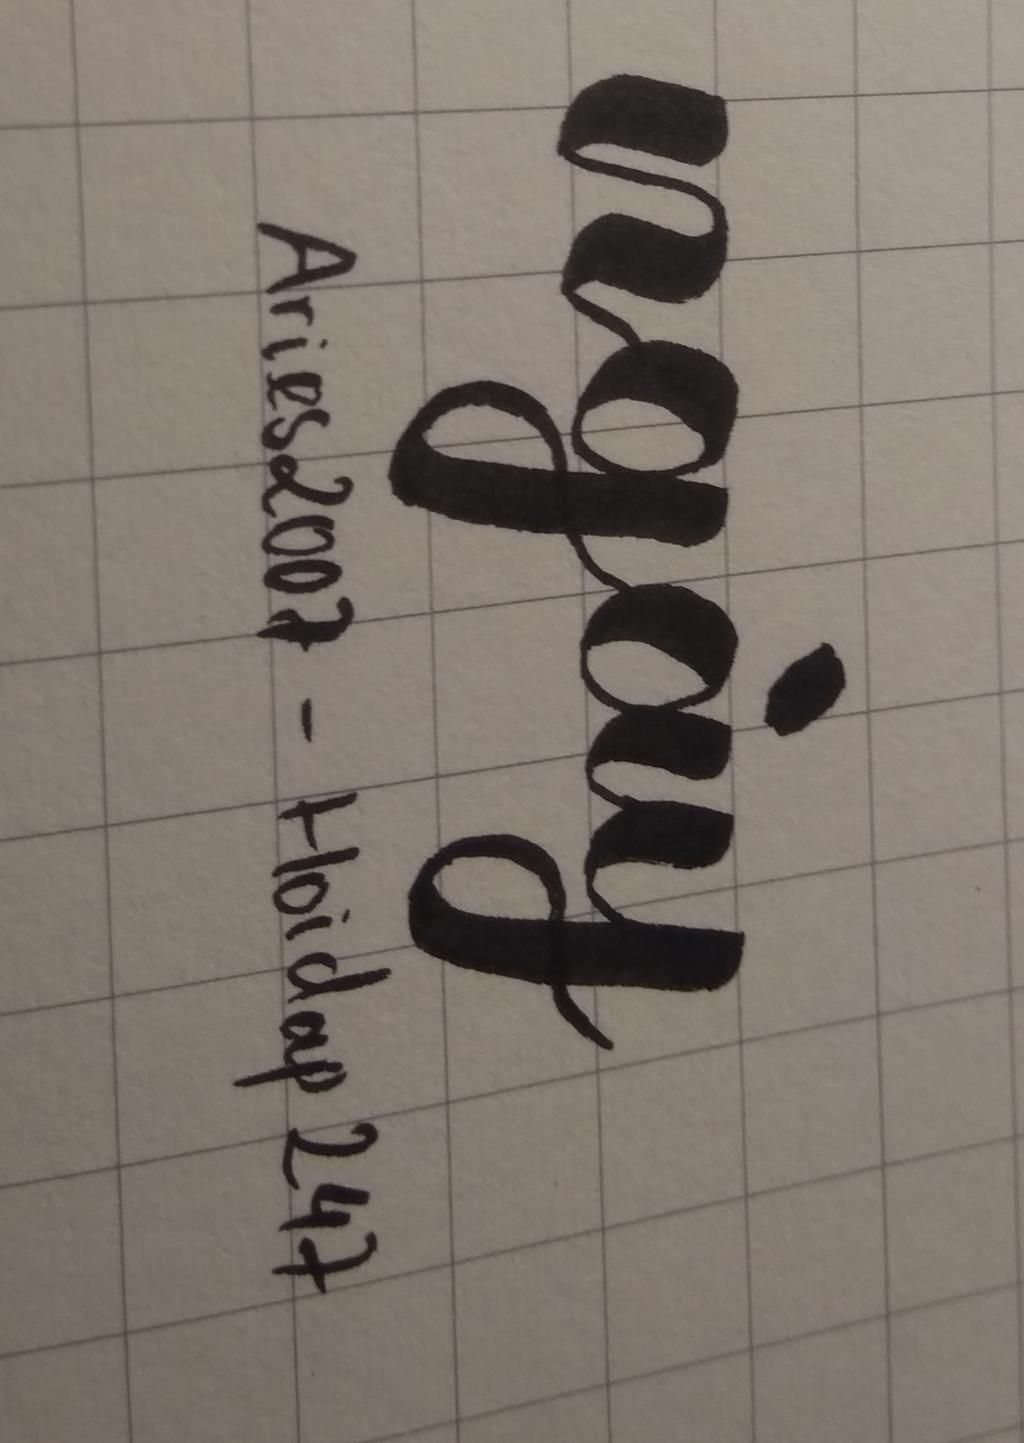 ngày
Aries2007 - Hoidap 247